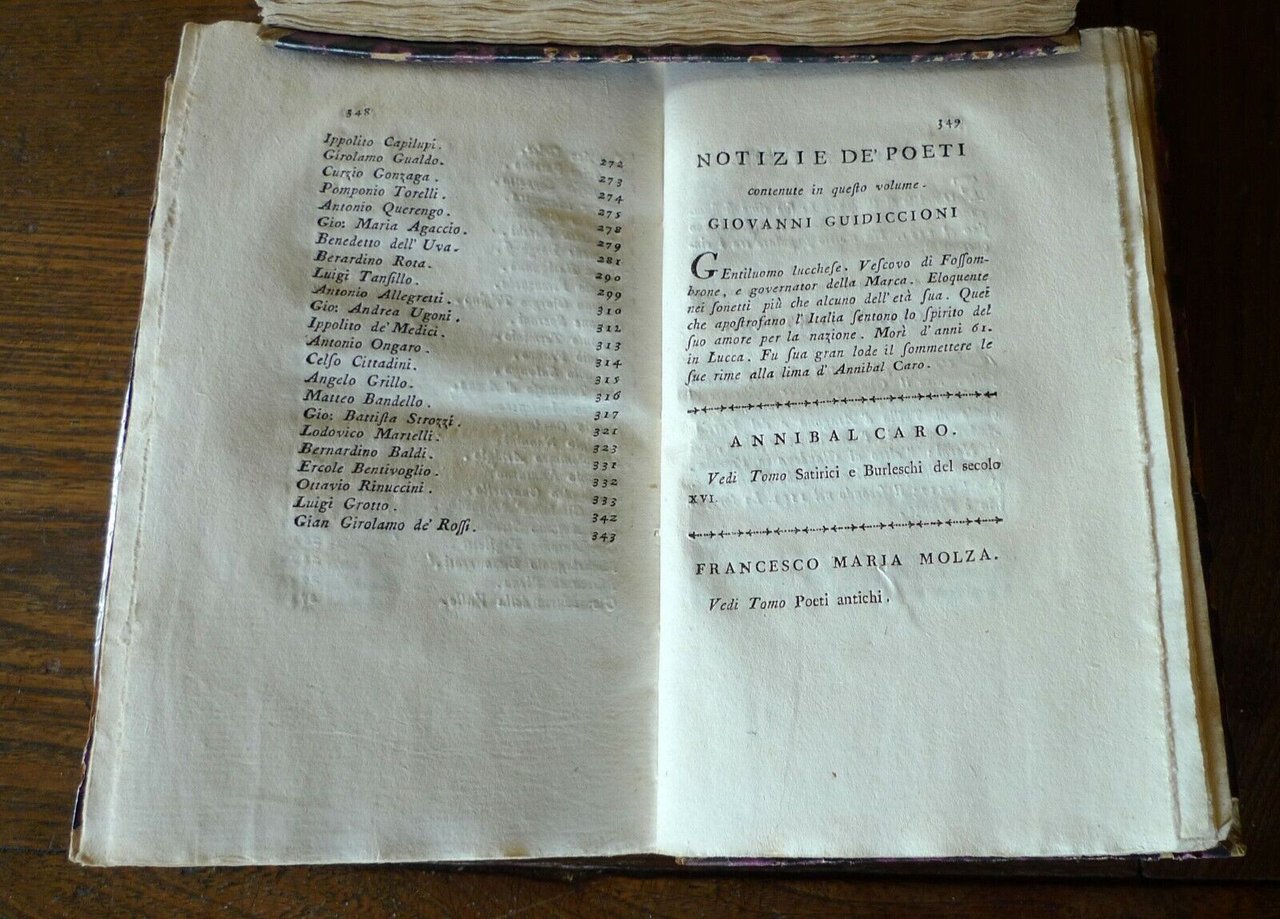 348
Ippolito Capilupi. 272
Girolamo Gualdo. 273
Curzio Gonzaga. 274
Pomponio Torelli. 275
Antonio Querengo. 278
Gio: Maria Agaccio. 279
Benedetto dell' Uva. 281
Berardino Rota. 290
Luigi Tanſillo. 299
Antonio Allegretti. 310
Gio: Andrea Ugoni. 312
Ippolito de' Medici. 313
Antonio Ongaro. 314
Celſo Cittadini. 315
Angelo Grillo. 316
Matteo Bandello. 317
Gio: Battiſta Strozzi. 321
Lodovico Martelli. 323
Bernardino Baldi. 331
Ercole Bentivoglio. 332
Ottavio Rinuccini. 333
Luigi Grotto. 342
Gian Girolamo de' Roſſi. 343
349
NOTIZIE DE' POETI
contenute in queſto volume.
GIOVANNI GUIDICCIONI
GEntiluomo luccheſe. Veſcovo di Foſſom-
brone, e governator della Marca. Eloquente
nei ſonetti più che alcuno dell' età ſua. Quei
che apoſtrofano l' Italia ſentono lo ſpirito del
ſuo amore per la nazione. Morì d' anni 61.
in Lucca. Fu ſua gran lode il ſommettere le
ſue rime alla lima d' Annibal Caro.
ANNIBAL CARO.
Vedi Tomo Satirici e Burleſchi del secolo
XVI.
FRANCESCO MARIA MOLZA.
Vedi Tomo Poeti antichi.